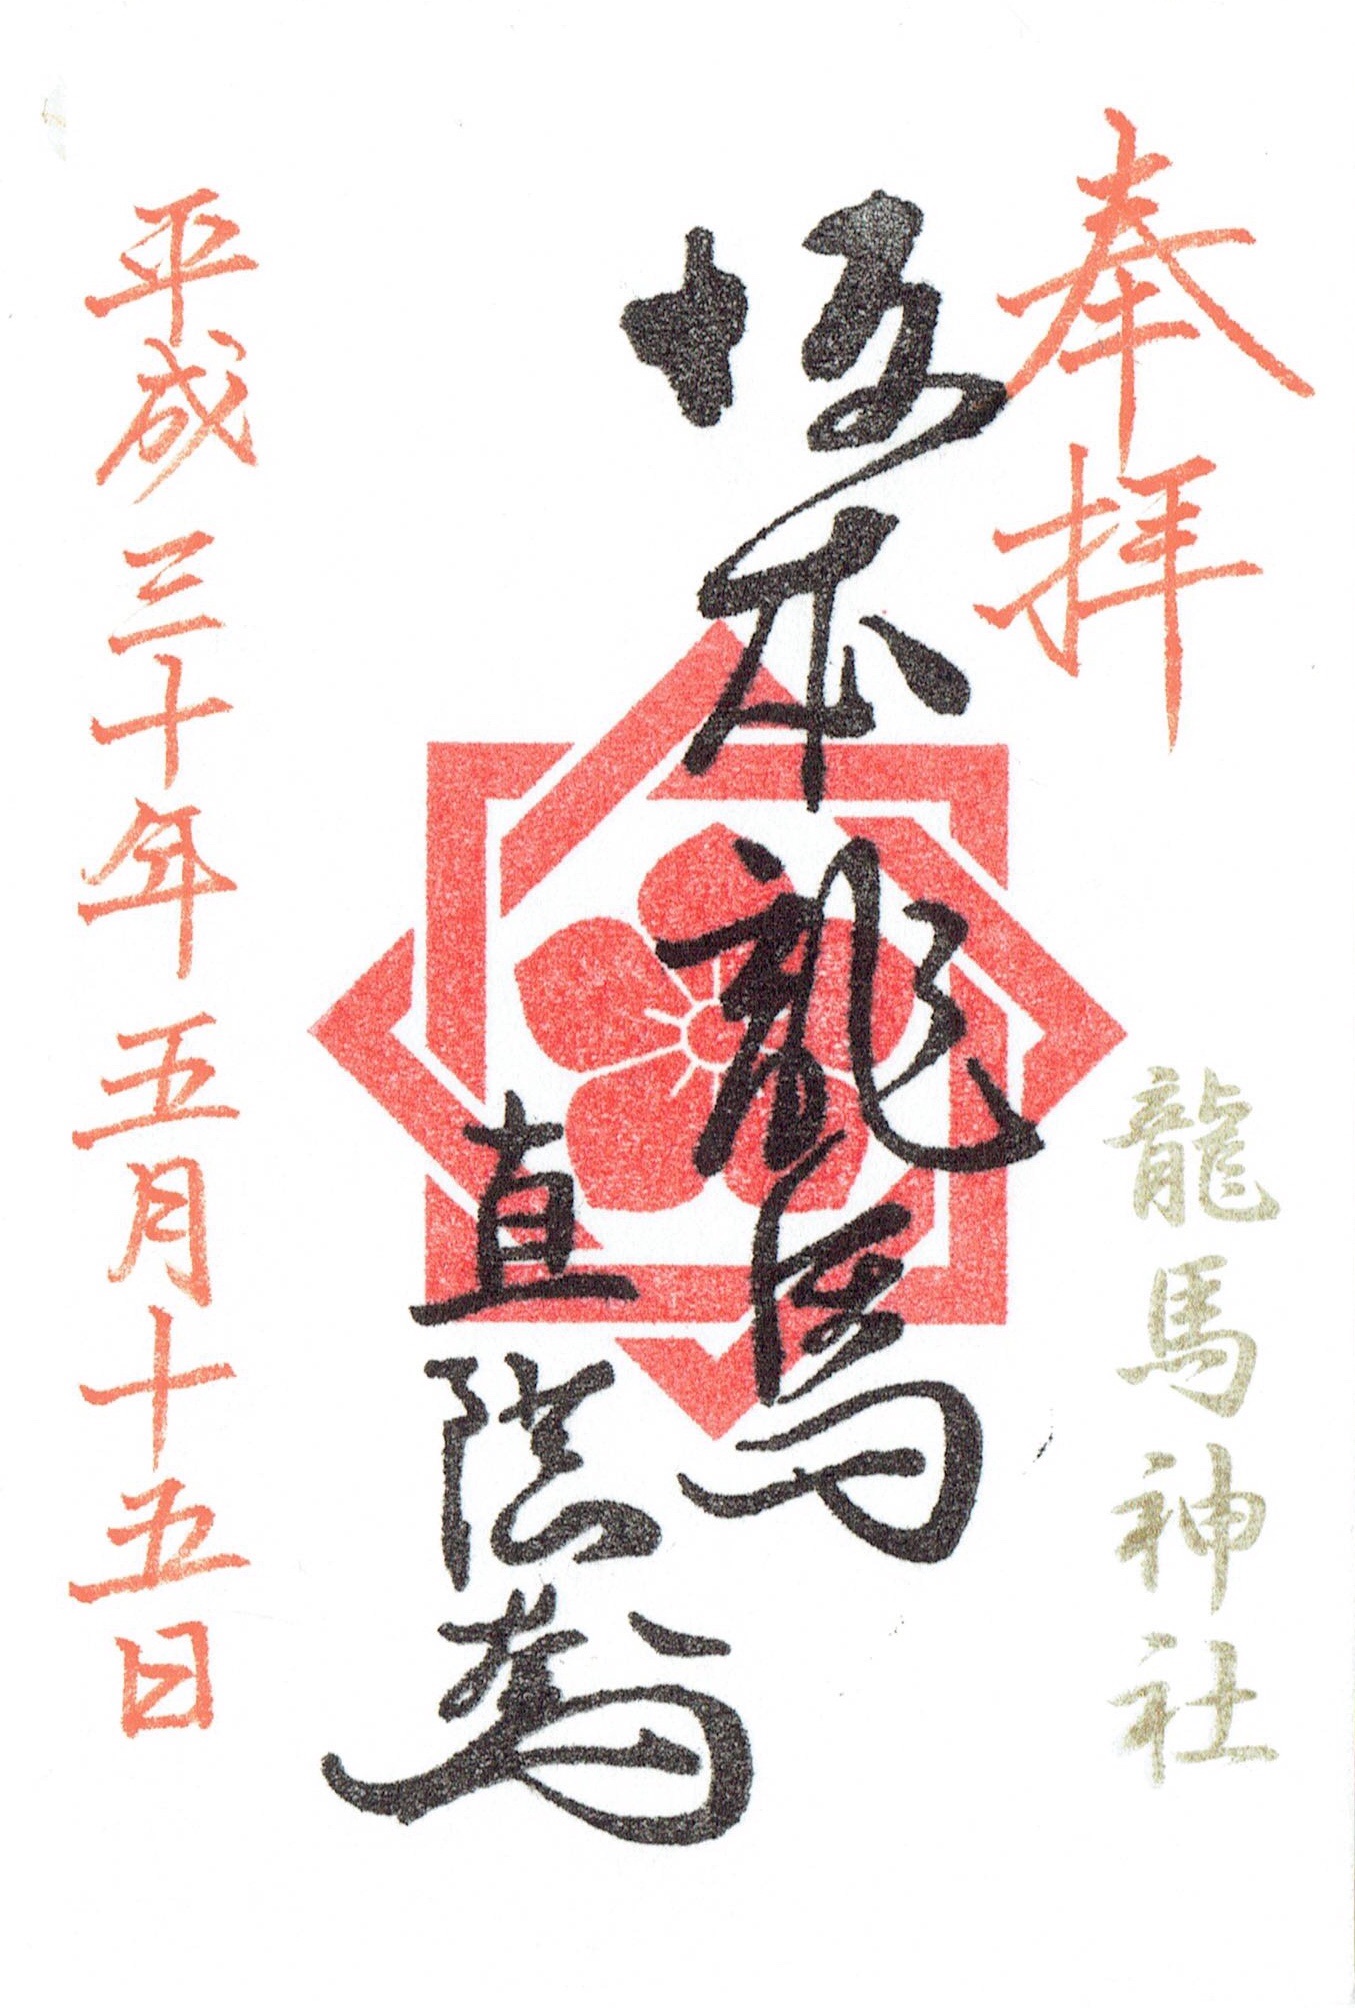 奉拝
龍馬神社
坂本龍馬
直陰
平成三十年五月十五日